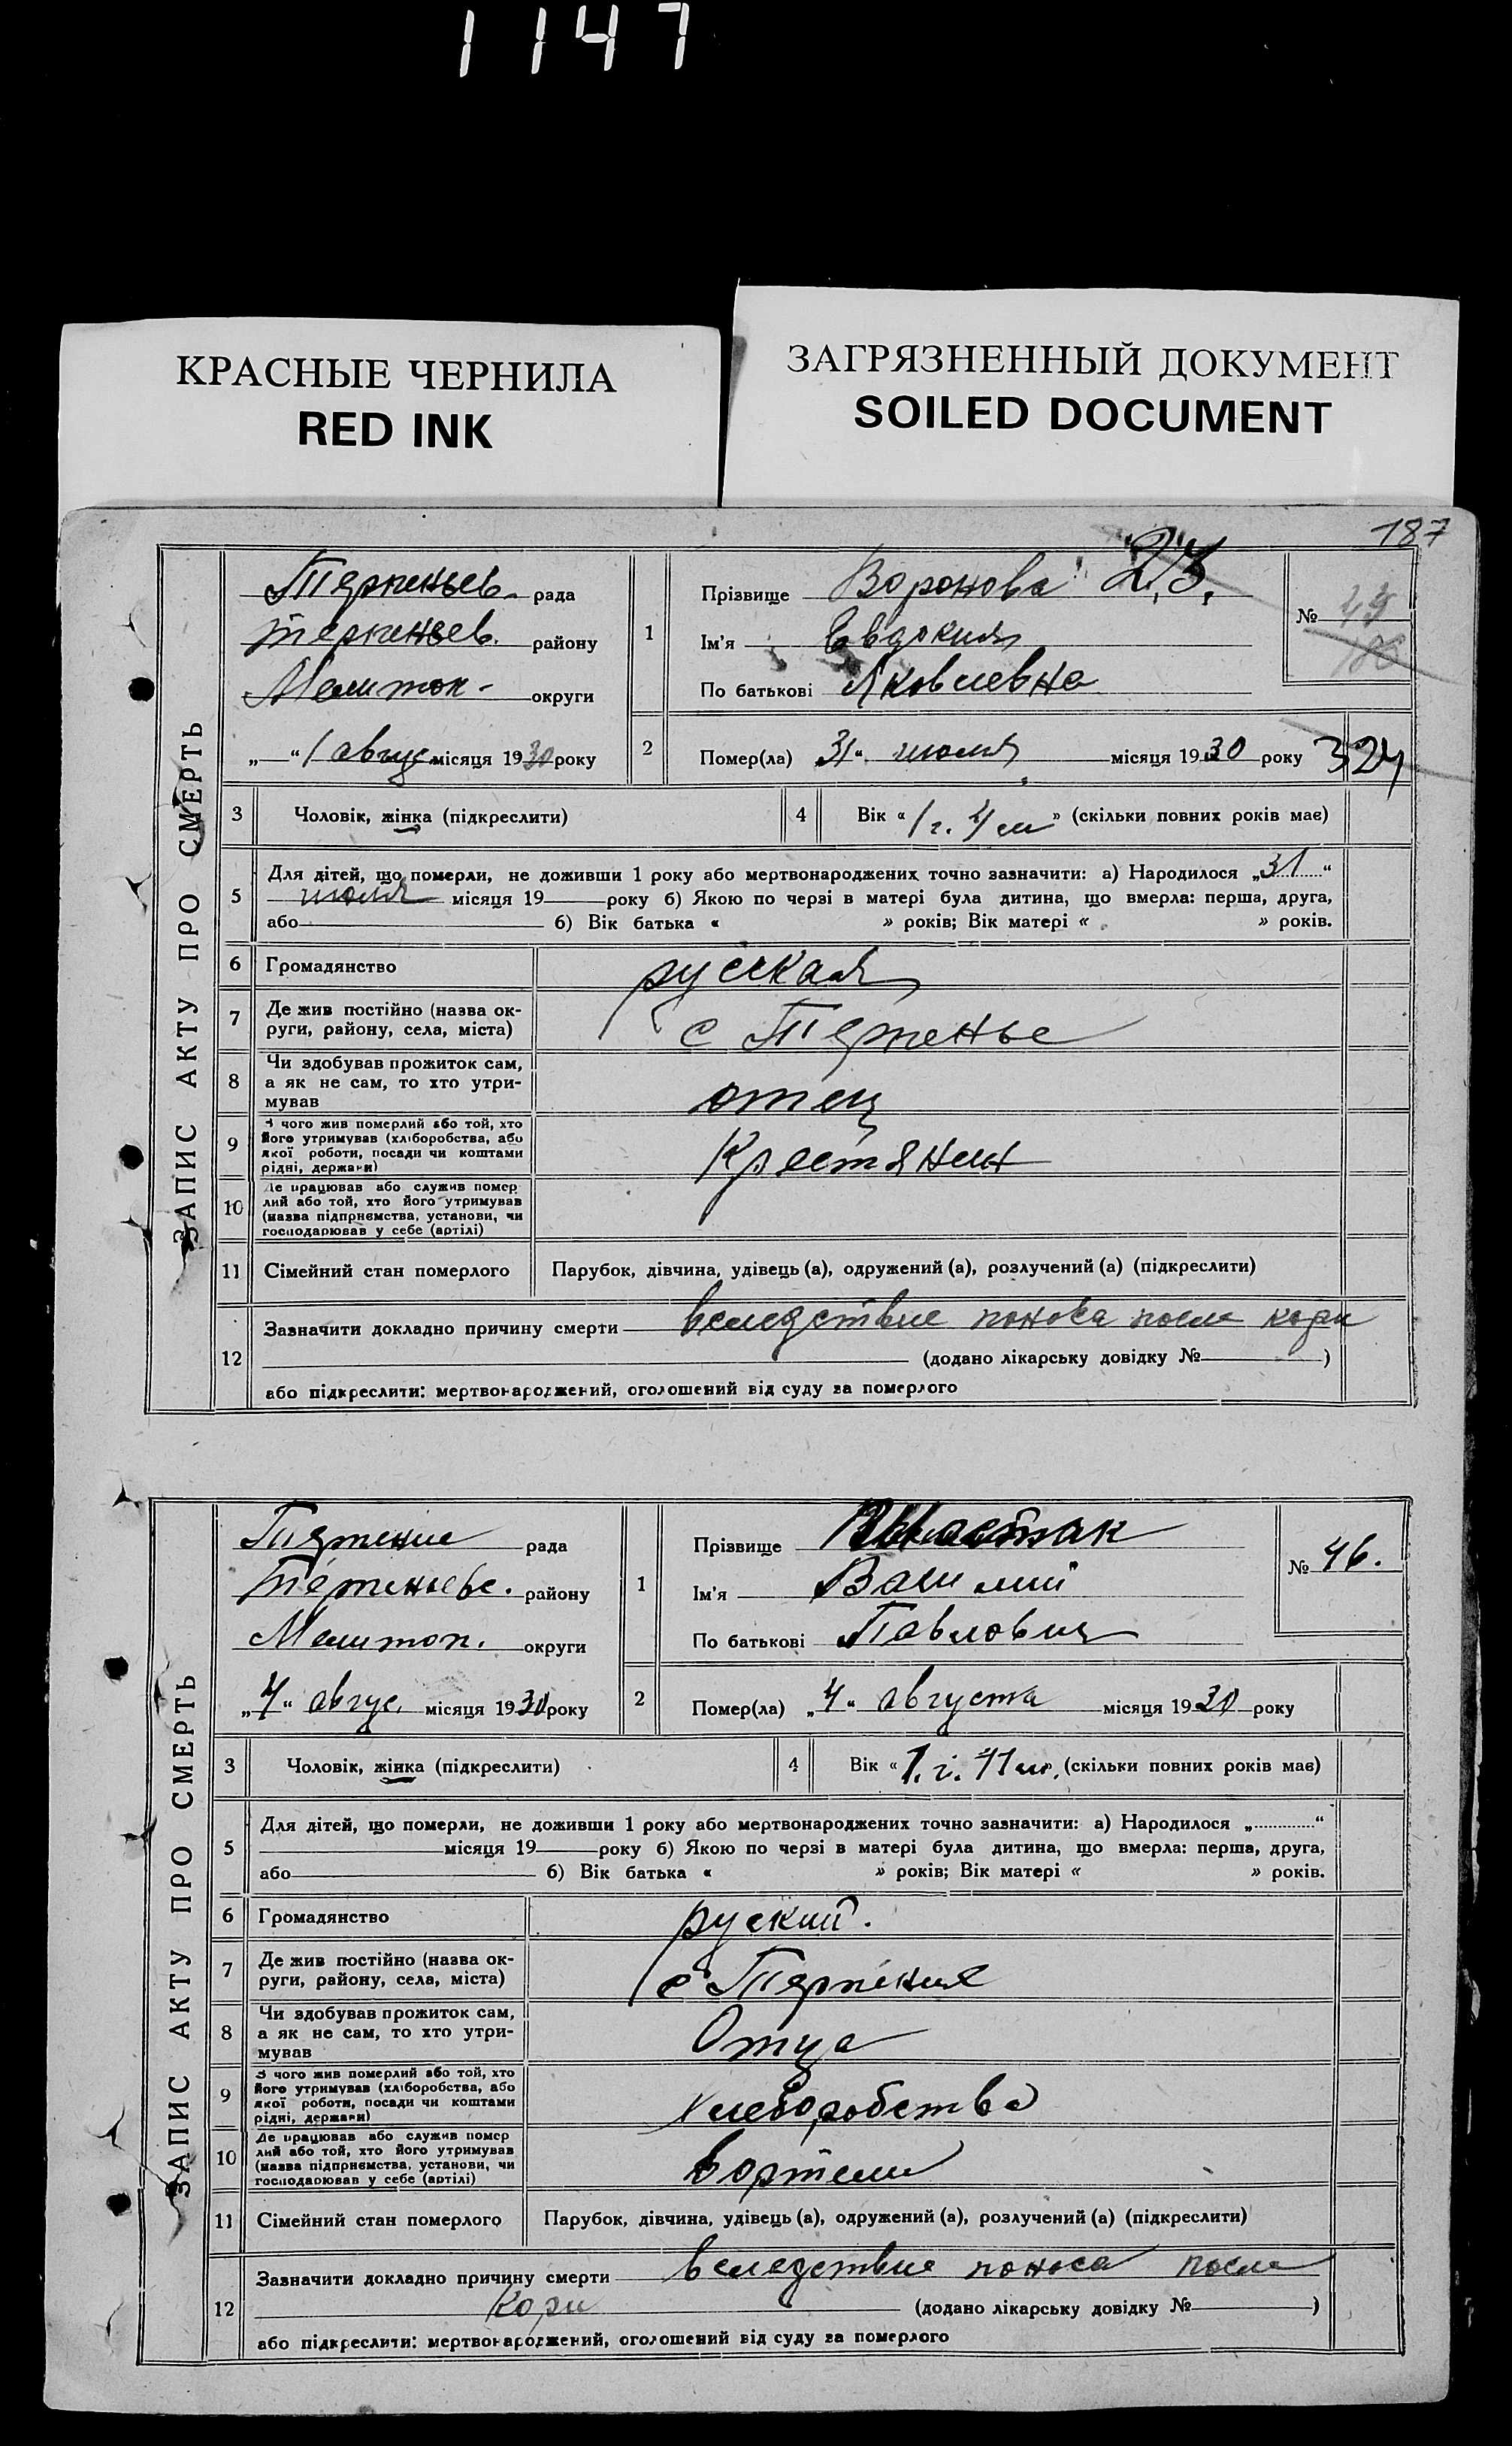 1147
КРАСНЫЕ ЧЕРНИЛА
RED INK
ЗАГРЯЗНЕННЫЙ ДОКУМЕНТ
SOILED DOCUMENT
187
ЗАПИС АКТУ ПРО СМЕРТЬ
Терпеньев. рада
Терпеньев. району
Мелитоп. округи
„ “ 1 авгус. місяця 1930 року
1
Прізвище Воронова 23.
Ім'я Евдокия
По батькові Яковлевна
№ 45
2
Помер(ла) „31“ июля місяця 1930 року
324
3 Чоловік, жінка (підкреслити)
4 Вік «1 г. 4 м» (скільки повних років має)
5 Для дітей, що померли, не доживши 1 року або мертвонароджених точно зазначити: а) Народилося „31“
июля місяця 19 року б) Якою по черзі в матері була дитина, що вмерла: перша, друга,
або б) Вік батька « » років; Вік матері « » років.
6 Громадянство русская
7 Де жив постійно (назва ок-
руги, району, села, міста) с Терпенье
8 Чи здобував прожиток сам,
а як не сам, то хто утри-
мував отец
9 З чого жив померлий або той, хто
його утримував (хліборобства, або
якої роботи, посади чи коштами
рідні, держави) Крестянин
10 Де працював або служив помер
лий або той, хто його утримував
(назва підприємства, установи, чи
господарював у себе (артілі)
11 Сімейний стан померлого Парубок, дівчина, удівець (а), одружений (а), розлучений (а) (підкреслити)
12 Зазначити докладно причину смерти вследствие поноса после кори
(додано лікарську довідку № )
або підкреслити: мертвонароджений, оголошений від суду за померлого
ЗАПИС АКТУ ПРО СМЕРТЬ
Терпение рада
Терпеньевс. району
Мелитоп. округи
„4“ авгус. місяця 1930 року
1
Прізвище
Ім'я Василий
По батькові Павлович
№ 46.
2
Помер(ла) „4“ августа місяця 1930 року
3 Чоловік, жінка (підкреслити)
4 Вік «1. г. 11 м». (скільки повних років має)
5 Для дітей, що померли, не доживши 1 року або мертвонароджених точно зазначити: а) Народилося „ “
місяця 19 року б) Якою по черзі в матері була дитина, що вмерла: перша, друга,
або б) Вік батька « » років; Вік матері « » років.
6 Громадянство руский.
7 Де жив постійно (назва ок-
руги, району, села, міста) с Терпения
8 Чи здобував прожиток сам,
а як не сам, то хто утри-
мував Отца
9 З чого жив померлий або той, хто
його утримував (хліборобства, або
якої роботи, посади чи коштами
рідні, держави) хлеборобства
10 Де працював або служив помер
лий або той, хто його утримував
(назва підприємства, установи, чи
господарював у себе (артілі) вортели
11 Сімейний стан померлого Парубок, дівчина, удівець (а), одружений (а), розлучений (а) (підкреслити)
12 Зазначити докладно причину смерти вследствие поноса после
Кори (додано лікарську довідку № )
або підкреслити: мертвонароджений, оголошений від суду за померлого